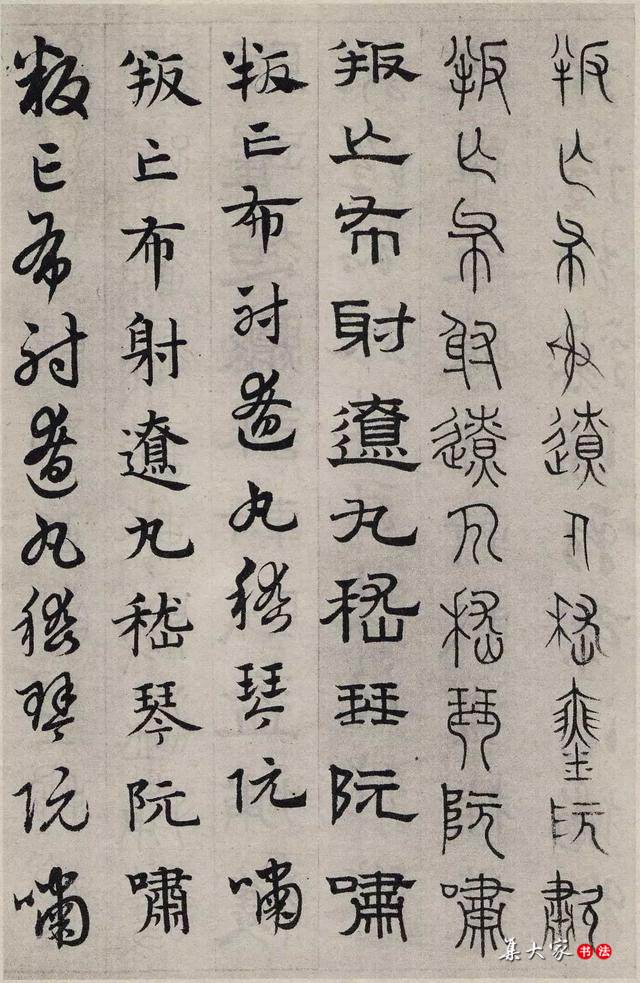 叛亡布射遼丸嵇琴阮嘯
叛亡布射遼丸嵇琴阮嘯
叛亡布射遼丸嵇琴阮嘯
叛亡布射遼丸嵇琴阮嘯
叛亡布射遼丸嵇琴阮嘯
叛亡布射遼丸嵇琴阮嘯
集大家书法